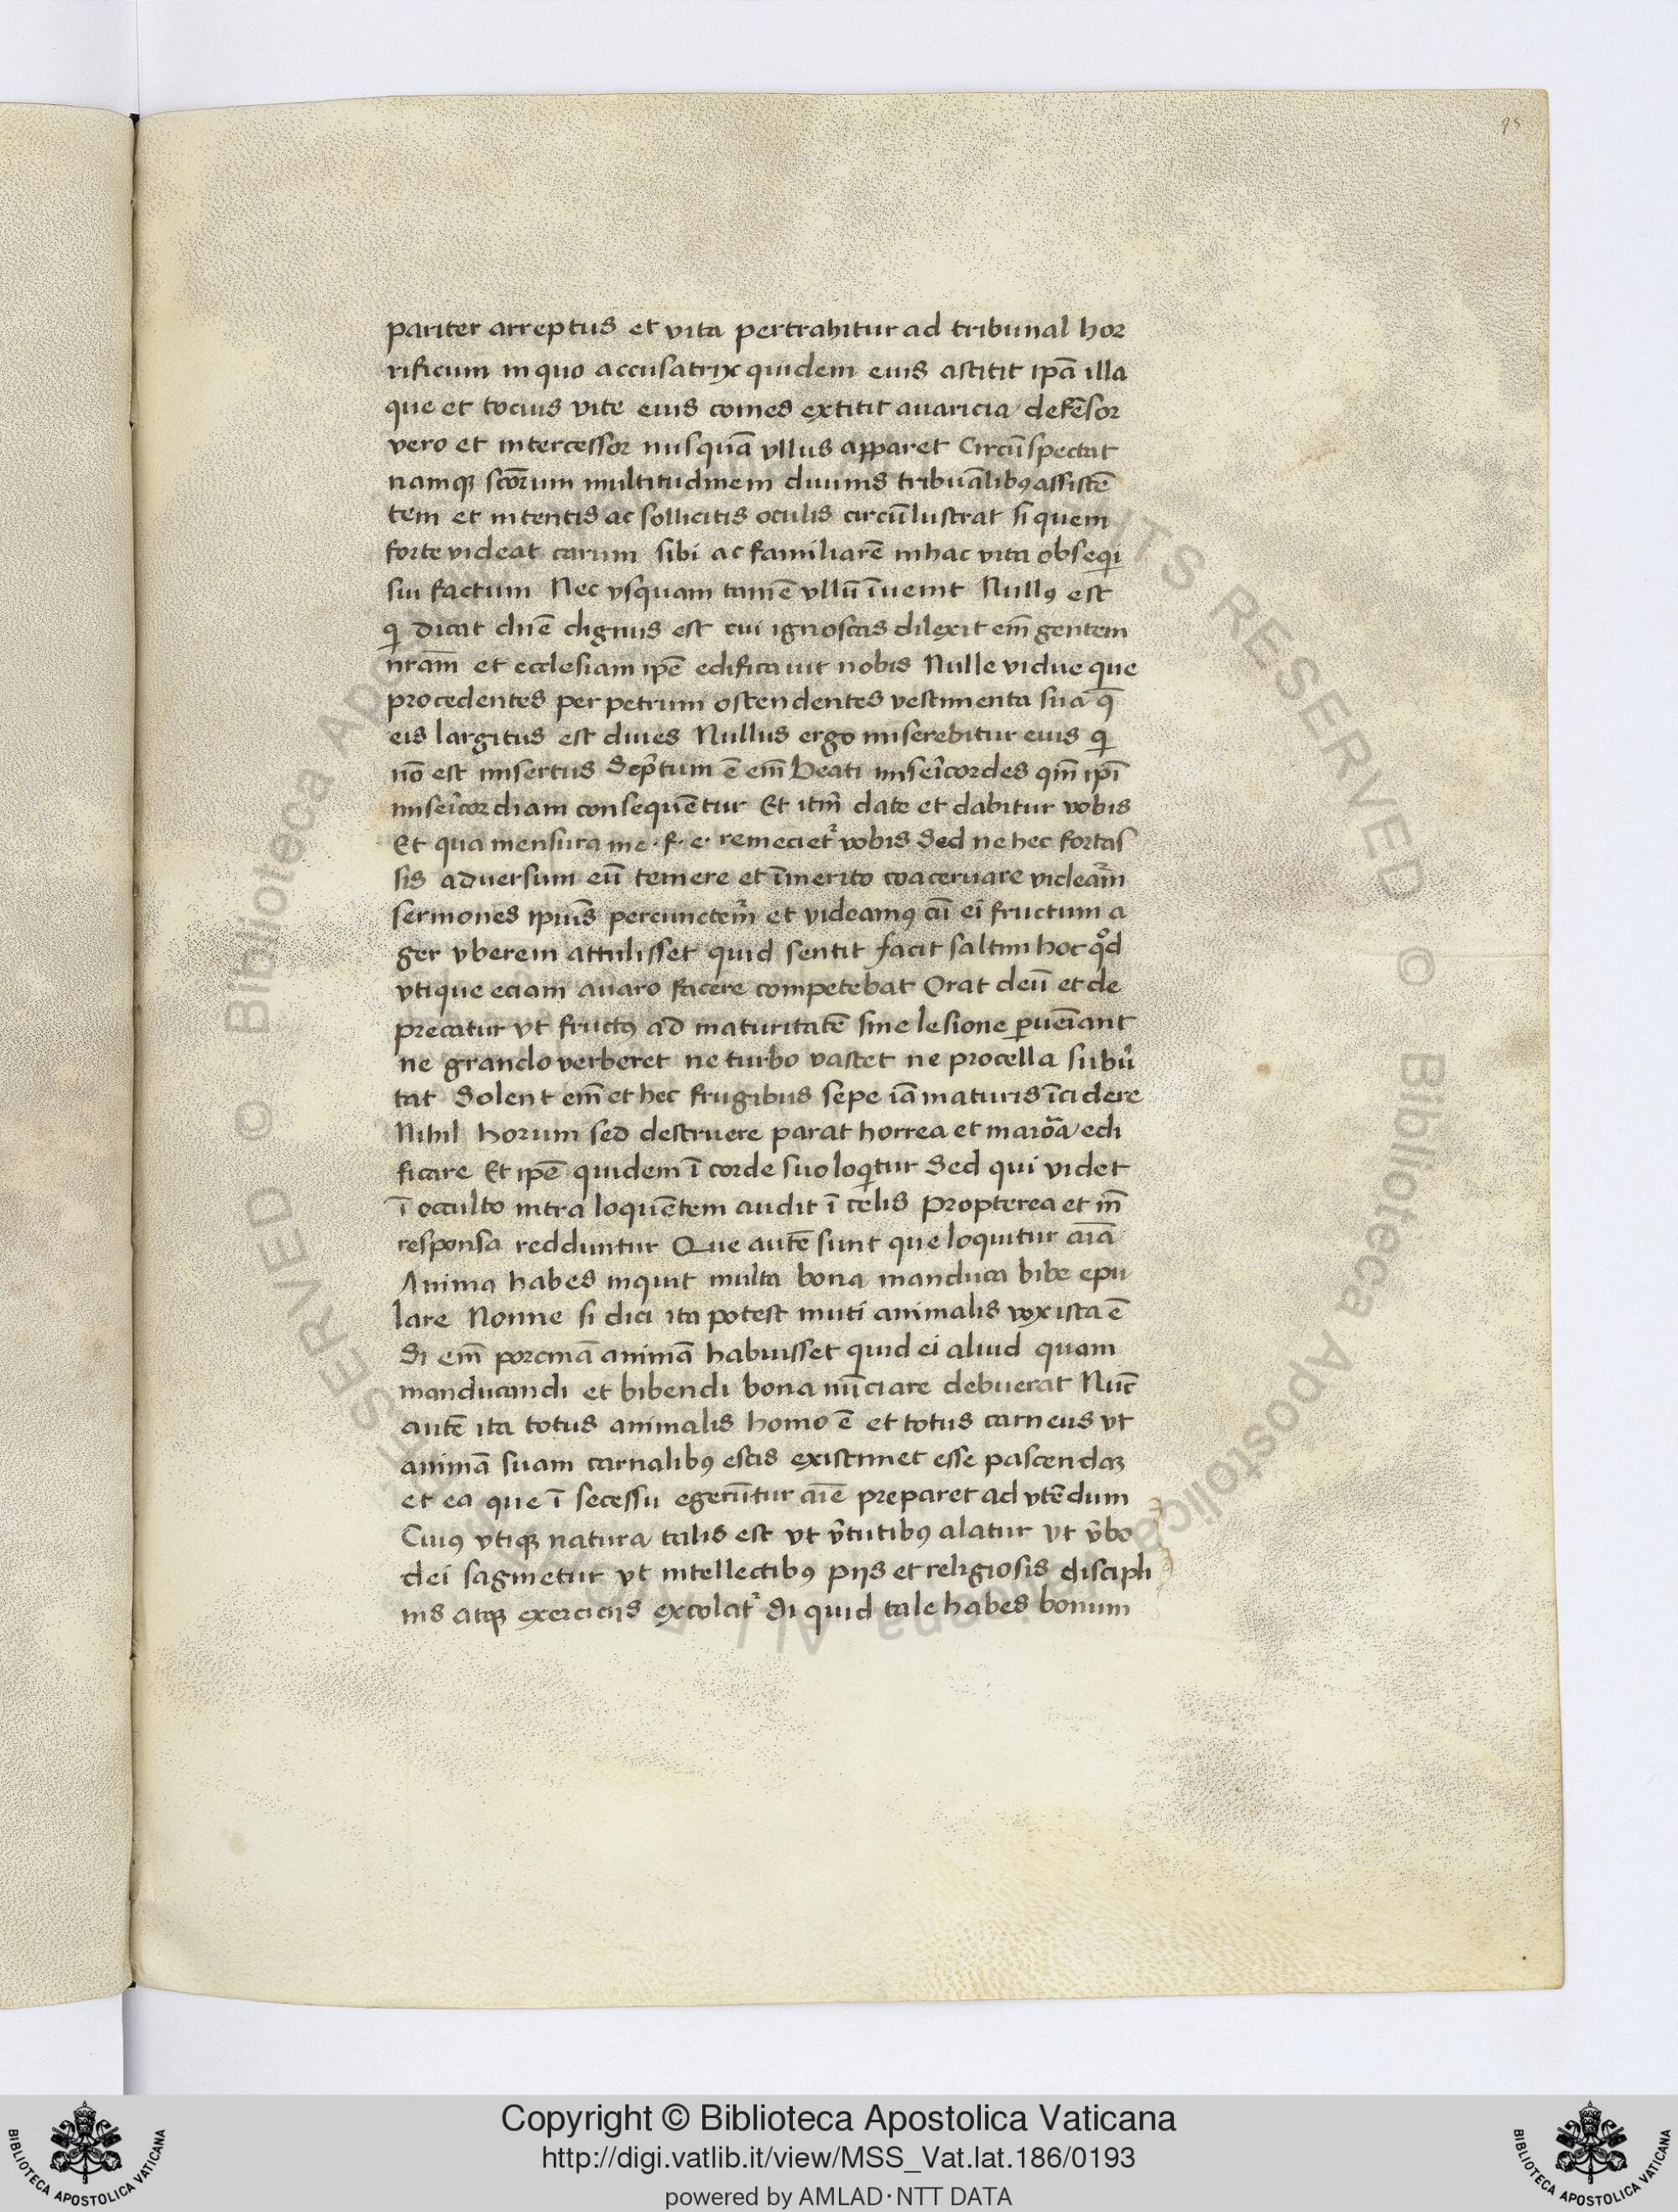 95
pariter arreptus et vita pertrahitur ad tribunal hor
rificum in quo accusatrix quidem eius astitit ip̄a illa
que et tocius vite eius comes extitit auaricia defēsor
vero et intercessor nusquā vllus apparet Circūspectat
namqꝫ sc̄orum multitudinem diuinis tribunālibꝯ assistē
tem et intentis ac sollicitis oculis circūlustrat si quem
forte videat carum sibi ac familiarē in hac vita obseqi
sui factum Nec vsquam tamē vllū īuenit Nullꝯ est
qi dicat dn̄e dignus est cui ignoscas dilexit em̄ gentem
nr̄am et ecclesiam ip̄e edificauit nobis Nulle vidue que
procedentes per petrum ostendentes vestimenta sua q̄
eis largitus est diues Nullus ergo miserebitur eius qi
nō est misertus Scp̄tum ē em̄ Beati miser̄icordes qm̄ ip̄i
miser̄icordiam consequētur Et itm̄ date et dabitur vobis
Et qua mensura me · f · e · remeciet᷑ vobis Sed ne hec fortas
sis aduersum eū temere et īmerito coaceruare videam᷑
sermones ipiu̅s percunctem᷑ et videamꝯ cū ei fructum a
ger vberem attulisset quid sentit facit saltim hoc qd̊
vtique eciam auaro facere competebat Orat deū et de
precatur vt fructꝯ ad maturitatē sine lesione ꝑueīant
ne grando verberet ne turbo vastet ne procella subu᷑
tat Solent em̄ et hec frugibus sepe iā maturis īcidere
Nihil horum sed destruere parat horrea et maiōa edi
ficare Et ip̄e quidem ī corde suo loqitur Sed qui videt
ī occulto intra loquētem audit ī celis Propterea et īn̄
responsa redduntur Que autē sunt que loquitur aīa
Anima habes inquit multa bona manduca bibe epu
lare Nonne si dici ita potest muti animalis vox ista ē
Si em̄ porcinā animā habuisset quid ei aliud quam
manducandi et bibendi bona nūciare debuerat Nūc
autē ita totus animalis homo ē et totus carneus vt
animā suam carnalibꝯ escis existimet esse pascendaꝫ
et ea que ī secessu egerūtur aīe preparet ad vtēdum
Cuiꝯ vtiqꝫ natura talis est vt v᷑tutibꝯ alatur vt v᷑bo
dei saginetur vt intellectibꝯ pijs et religiosis discipli
nis atqꝫ exercicijs excolat᷑ Si quid tale habes bonum
© Biblioteca Apostolica Vaticana ALL RIGHTS RESERVED
Copyright © Biblioteca Apostolica Vaticana
http://digi.vatlib.it/view/MSS_Vat.lat.186/0193
powered by AMLAD · NTT DATA
BIBLIOTECA APOSTOLICA VATICANA
BIBLIOTECA APOSTOLICA VATICANA